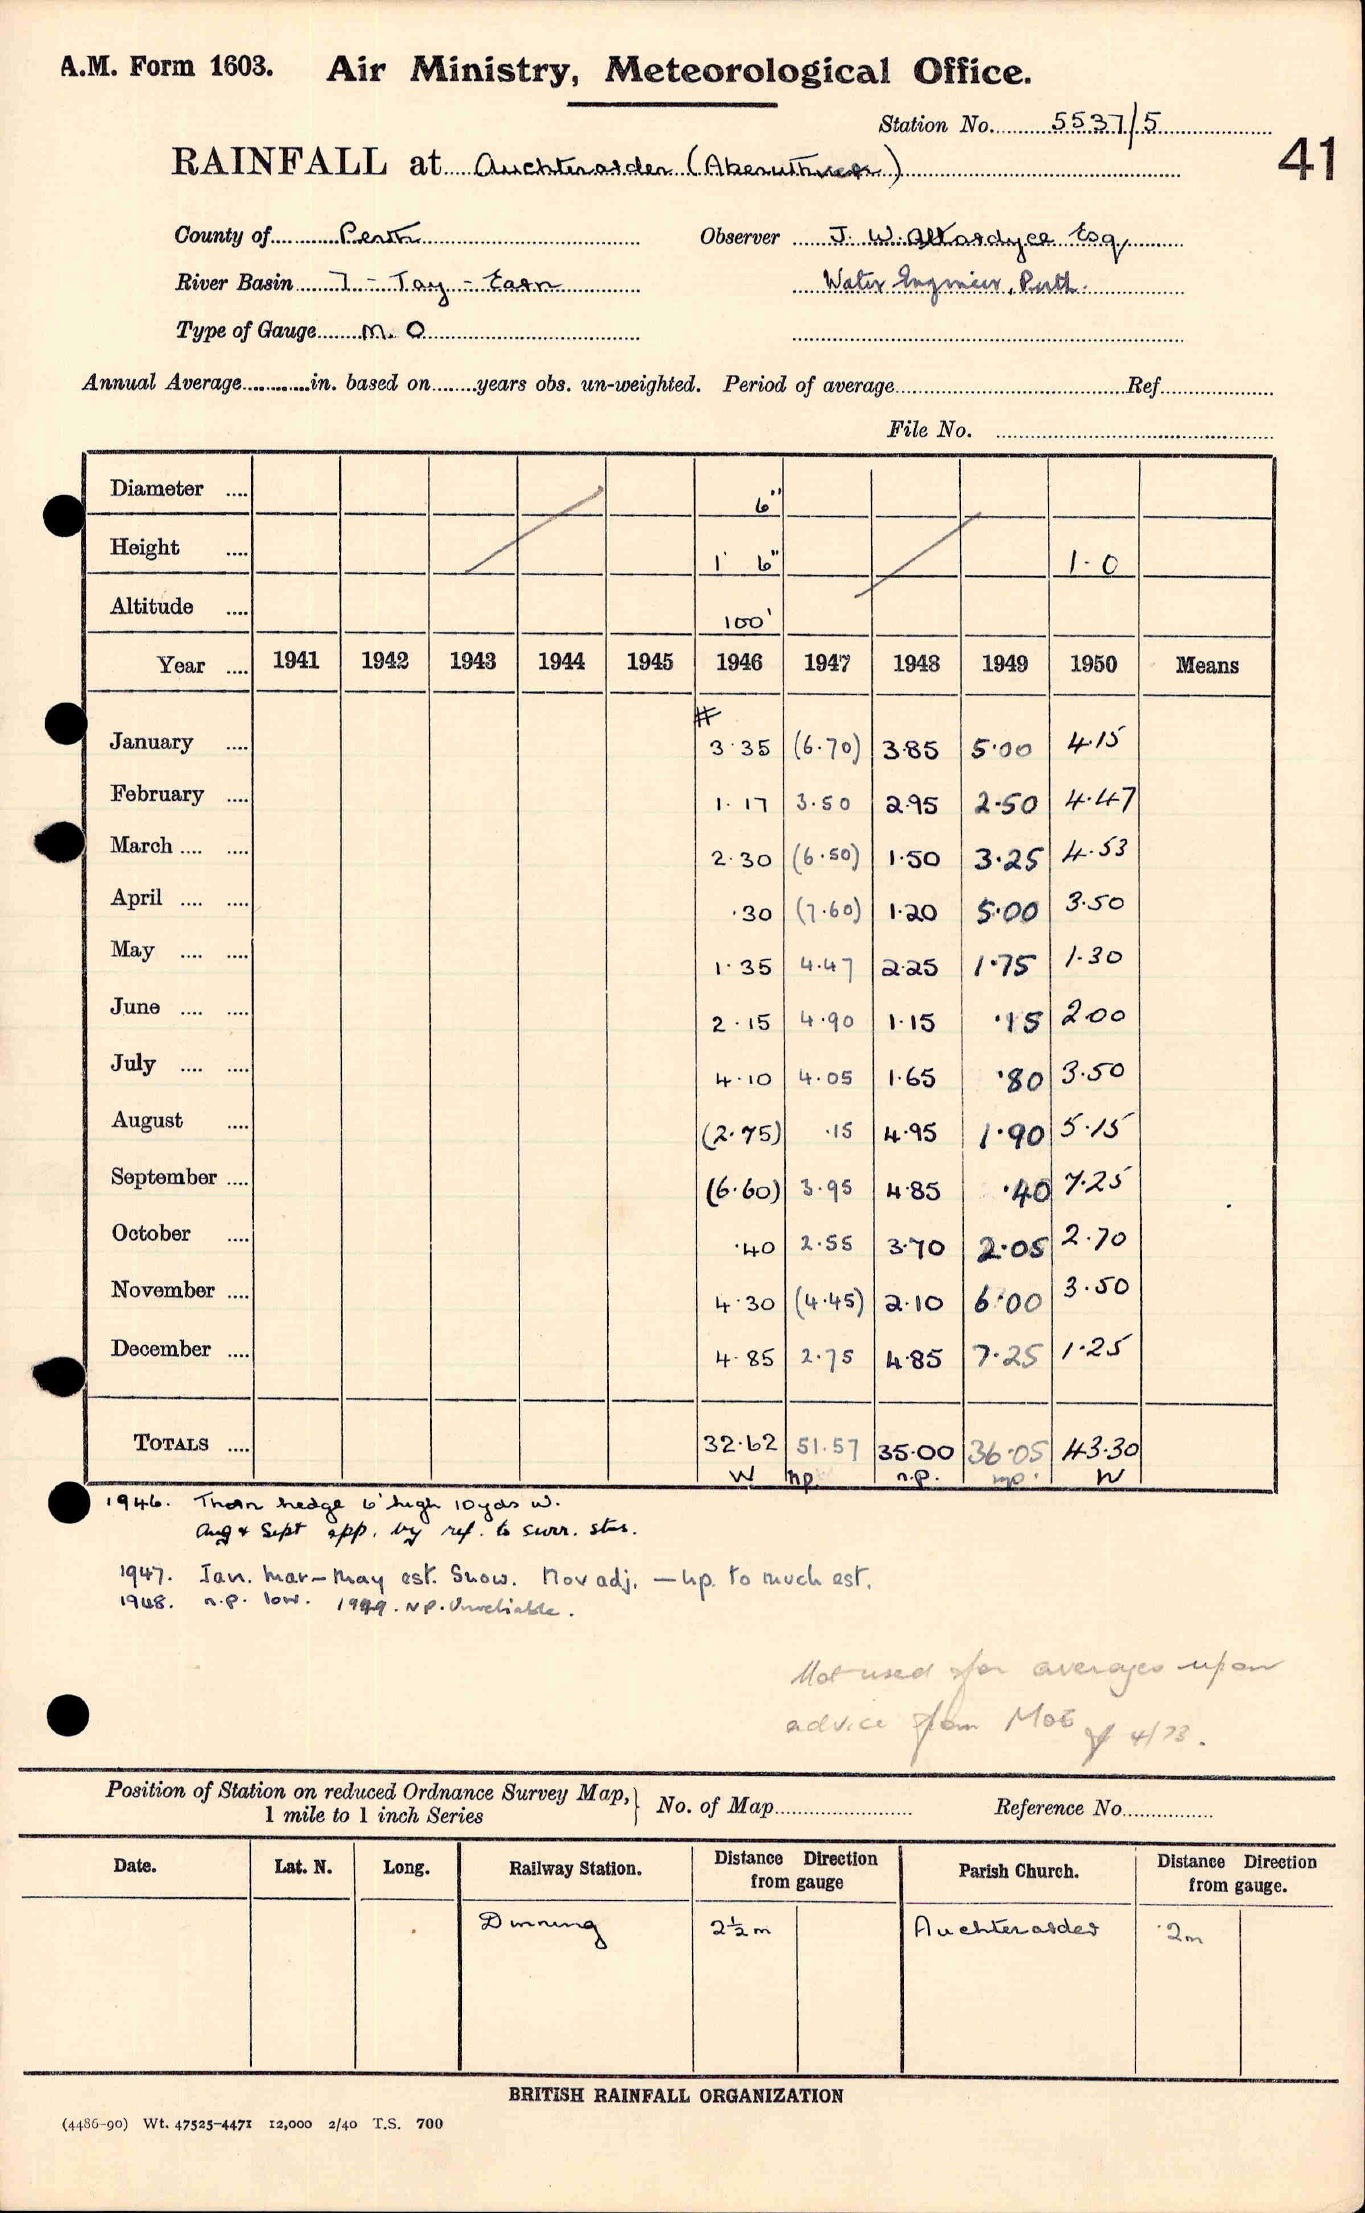 A.M. Form 1603. Air Ministry, Meteorological Office.
Station No. 5537/5
41
RAINFALL at Auchterarder (Aberuthven)
County of Perth Observer J. W. Allardyce Esq
River Basin 7 - Tay - Earn Water Engineer, Perth.
Type of Gauge M. O
Annual Average in. based on years obs. un-weighted. Period of average Ref
File No.
Diameter 6"
Height 1' 6" 1-0
Altitude 100'
Year 1941 1942 1943 1944 1945 1946 1947 1948 1949 1950 Means
#
January 3.35 (6.70) 3.85 5.00 4.15
February 1.17 3.50 2.95 2.50 4.47
March 2.30 (6.50) 1.50 3.25 4.53
April .30 (7.60) 1.20 5.00 3.50
May 1.35 4.47 2.25 1.75 1.30
June 2.15 4.90 1.15 .15 2.00
July 4.10 4.05 1.65 .80 3.50
August (2.75) .15 4.95 1.90 5.15
September (6.60) 3.95 4.85 .40 7.25
October .40 2.55 3.70 2.05 2.70
November 4.30 (4.45) 2.10 6.00 3.50
December 4.85 2.75 4.85 7.25 1.25
TOTALS 32.62 51.57 35.00 36.05 43.30
W np n.p. np. W
1946. Thorn hedge 6' high 10yds W.
Aug & Sept app. by ref. to surr. stns.
1947. Jan. Mar-May est. Snow. Nov adj. - n.p. to much est.
1948. n.p. low. 1949. N.P. Unreliable.
Not used for averages upon
advice from MoE 4/73.
Position of Station on reduced Ordnance Survey Map, 1 mile to 1 inch Series } No. of Map Reference No.
Date. Lat. N. Long. Railway Station. Distance Direction from gauge Parish Church. Distance Direction from gauge.
Dunning 2½m Auchterarder 2m
BRITISH RAINFALL ORGANIZATION
(4486-90) Wt. 47525-4471 12,000 2/40 T.S. 700